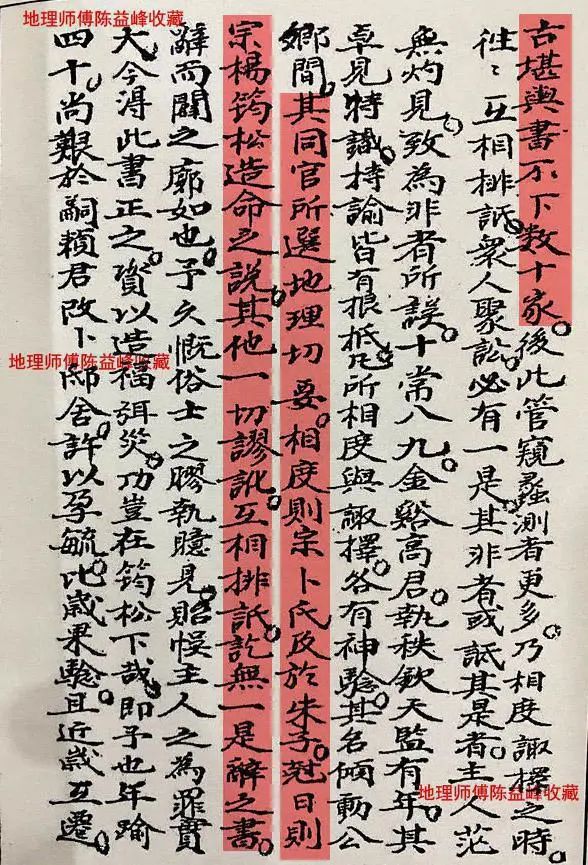 地理师傅陈益峰收藏
古堪輿書不下数十家。後此管窺蠡測者更多。乃相度諏擇之時。
徃〻互相排詆。衆人聚訟。必有一是。其非者或詆其是者。主人茫
無灼見。致為非者所誤。十常八九。金谿高君。執秩欽天監有年。其
卓見特識。持諭皆有根柢。凡所相度與諏擇。各有神騐。其名傾動公
鄉間。其同官所選地理切要。相度則宗卜氏及於朱子。尅日則
宗楊筠松造命之說。其他一切謬訛。互相排詆。訖無一是。辭之書。
辭而闢之廓如也。予久慨俗士之膠執臆見。貽悞主人之為罪實
大。今淂此書正之。資以造福弭災。功豈在筠松下哉。即予也年踰
四十。尚艱於嗣。賴君改卜邸舍。許以孕毓。比歲果騐。且近歲互遷
地理师傅陈益峰收藏
地理师傅陈益峰收藏